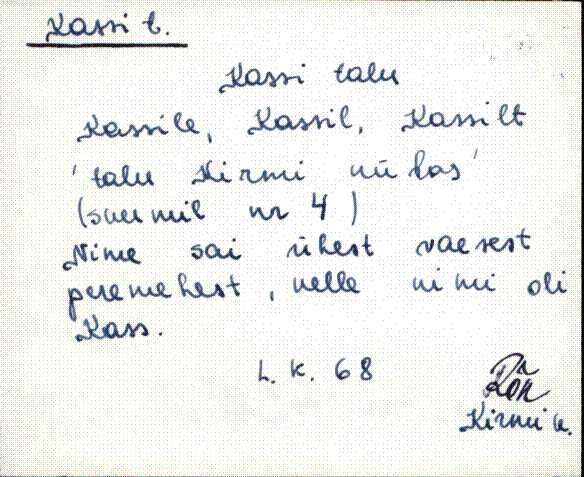 Kassi t.
Kassi talu
Kassile, Kassil, Kassilt
'talu Kirmi külas'
(suurmil nr 4)
Nime sai ühest vaesest
peremehest, kelle nimi oli
Kass.
L. K. 68
Rõn
Kirmi k.